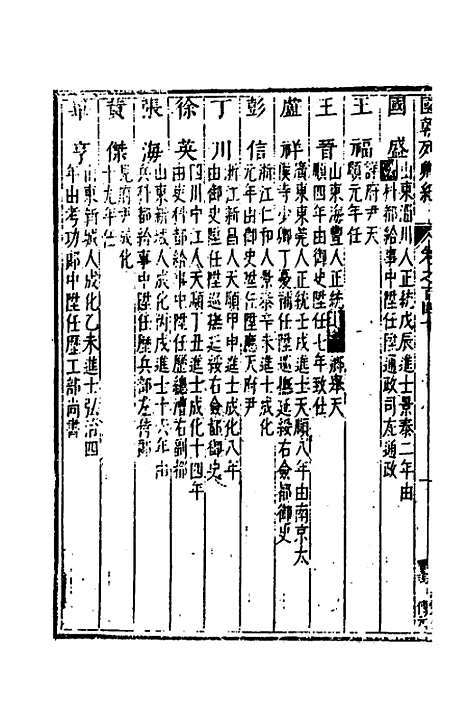 國朝列卿紀 卷之一百四十
國盛 山東淄川人正統戊辰進士景泰二年由
科都給事中陞任陞通政司左通政
王福 府尹天
順元年任
王晉 山東海豐人正統 鄉舉天
順四年由御史陞任七年致仕
盧祥 廣東東莞人正統壬戌進士天順八年由南京太
僕寺少卿丁憂補任陞巡撫延綏右僉都御史
彭信 浙江仁和人景泰辛未進士成化
元年由御史陞任陞應天府尹
丁川 浙江新昌人天順甲申進士成化八年
由御史陞任陞巡撫延綏右僉都御史
徐英 四川中江人天順丁丑進士成化十四年
由吏科都給事中陞任歷總漕右副都
張海 山東新城人成化丙戌進士十六年由
兵科都給事中陞任歷兵部左侍郎
黃傑 見府尹成化
十九年任
畢亨 山東新城人成化乙未進士弘治四
年由考功郎中陞任歷工部尚書